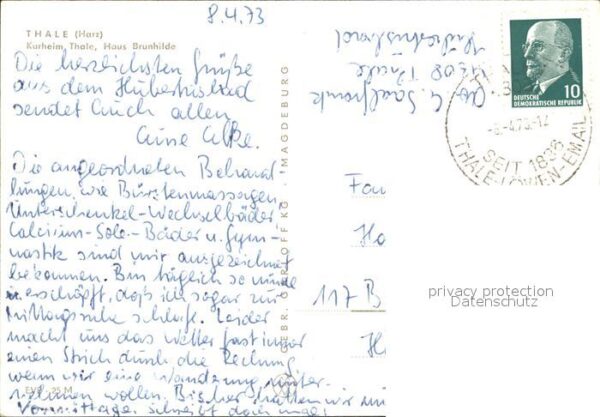 8.4.73
THALE (Harz)
Kurheim Thale, Haus Brunhilde
Die herzlichsten Grüße
aus dem Hubertusbad
sendet Euch allen
Eure Elke.
Die angeordneten Behand-
lungen, wie Bürstenmassagen,
Unterschenkel-Wechselbäder
Calcium-Sole-Bäder u. Gym-
nastik sind mir ausgezeichnet
bekommen. Bin täglich so müde
u. erschöpft, daß ich sogar zur
Mittagsruhe schlafe. Leider
macht uns das Wetter fast immer
einen Strich durch die Rechnung
wenn wir eine Wanderung unter-
nehmen wollen. Bisher hatten wir nur
schreibt doch mal!
EVP 25 M
GEBR. KG · MAGDEBURG
4308 Thale
Hubertusbad
10
DEUTSCHE
DEMOKRATISCHE REPUBLIK
SEIT 1835
THALE-LÖWEN-EMAIL
Fam
117 B
privacy protection
Datenschutz